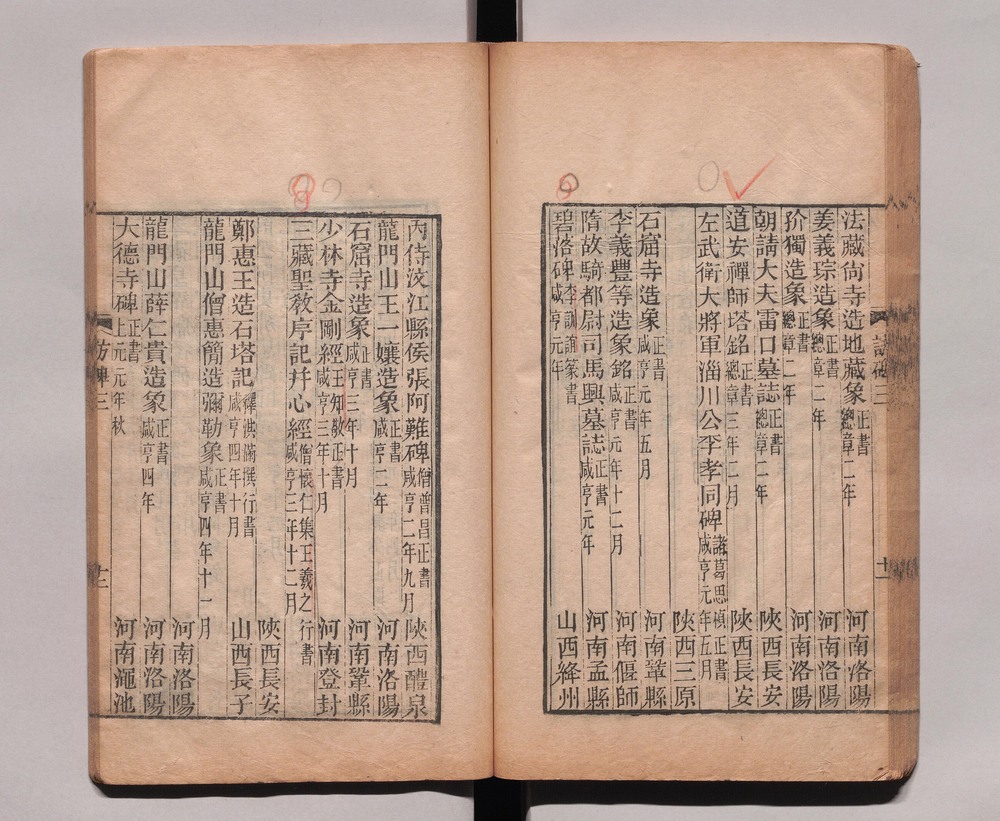 法藏尙寺造地藏象 正書 總章二年 河南洛陽
姜義琮造象 正書 總章二年 河南洛陽
孙獨造象 正書 總章二年 河南洛陽
朝請大夫雷口墓誌 總章二年 陝西長安
道安禪師塔銘 正書 總章三年二月 陝西長安
左武衛大將軍淄川公李孝同碑 諸葛思楨正書 咸亨元年五月
陝西三原
石窟寺造象 正書 咸亨元年五月 河南鞏縣
李義豐等造象銘 正書 咸亨元年十二月 河南偃師
隋故騎都尉司馬興墓誌 正書 咸亨元年 河南孟縣
碧洛碑 李訓誼篆書 咸亨元年 山西絳州
訪碑三
十一
內侍汶江縣侯張阿難碑 僧普昌正書 咸亨二年九月 陝西醴泉
龍門山王一孃造象 正書 咸亨二年 河南洛陽
石窟寺造象 正書 咸亨三年十月 河南鞏縣
少林寺金剛經 王知敬正書 咸亨三年十月 河南登封
三藏聖教序記幷心經 僧懷仁集王羲之行書 咸亨三年十二月
陝西長安
鄭惠王造石塔記 釋洪滿撰行書 咸亨四年十月 山西長子
龍門山僧惠簡造彌勒象 正書 咸亨四年十一月
河南洛陽
龍門山薛仁貴造象 正書 咸亨四年 河南洛陽
大德寺碑 正書 上元元年秋 河南澠池
訪碑三
十二